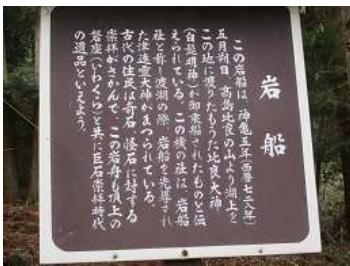 岩船
この岩船は、神亀五年(西暦七二八年)
五月朔日、高島比良の山より湖上を
この地に渡りたもうた比良大神
(白髭明神)が御乗船されたものと伝
えられている。この横の社は、岩船
社と称し渡湖の際、岩船を先導され
た津速霊大神がまつられている。
古代の住民は奇石、怪石に対する
崇拝がさかんで、この岩舟も頂上の
磐座(いわくら)と共に巨石崇拝時代
の遺品といえよう。